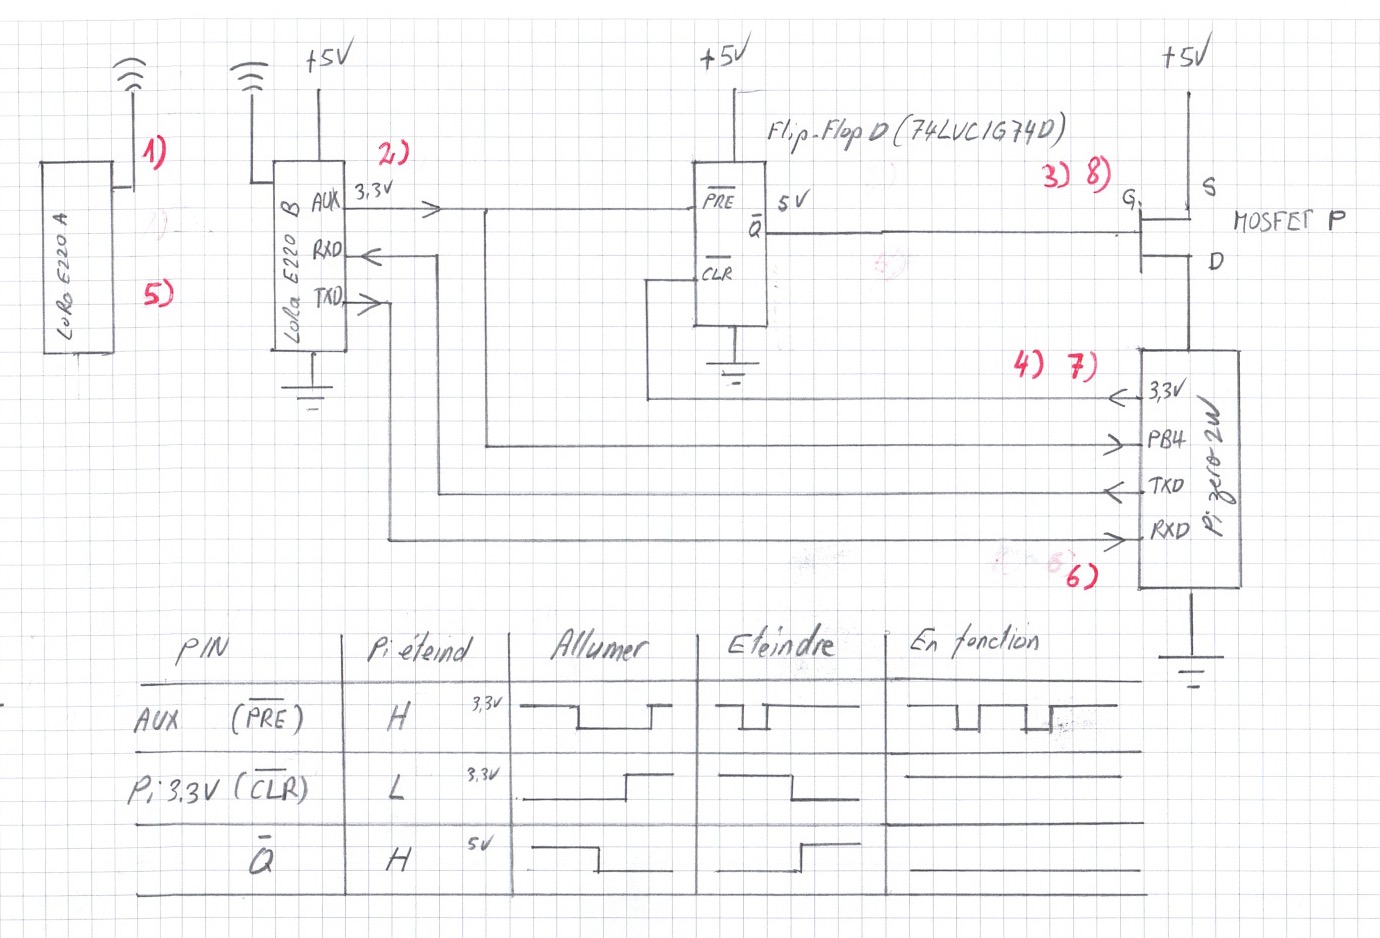 +5V
+5V
+5V
Flip-Flop D (74LVC1G74D)
1)
2)
3) 8)
LoRa E220 A
5)
LoRa E220 B
AUX 3,3V
RXD
TXD
PRE
5V
Q
CLR
G
S
MOSFET P
D
4) 7)
3,3V
PB4
TXD
RXD
Pi zero 2W
6)
PIN Pi éteind Allumer Eteindre En fonction
AUX (PRE) H 3,3V
Pi 3.3V (CLR) L 3,3V
Q H 5V